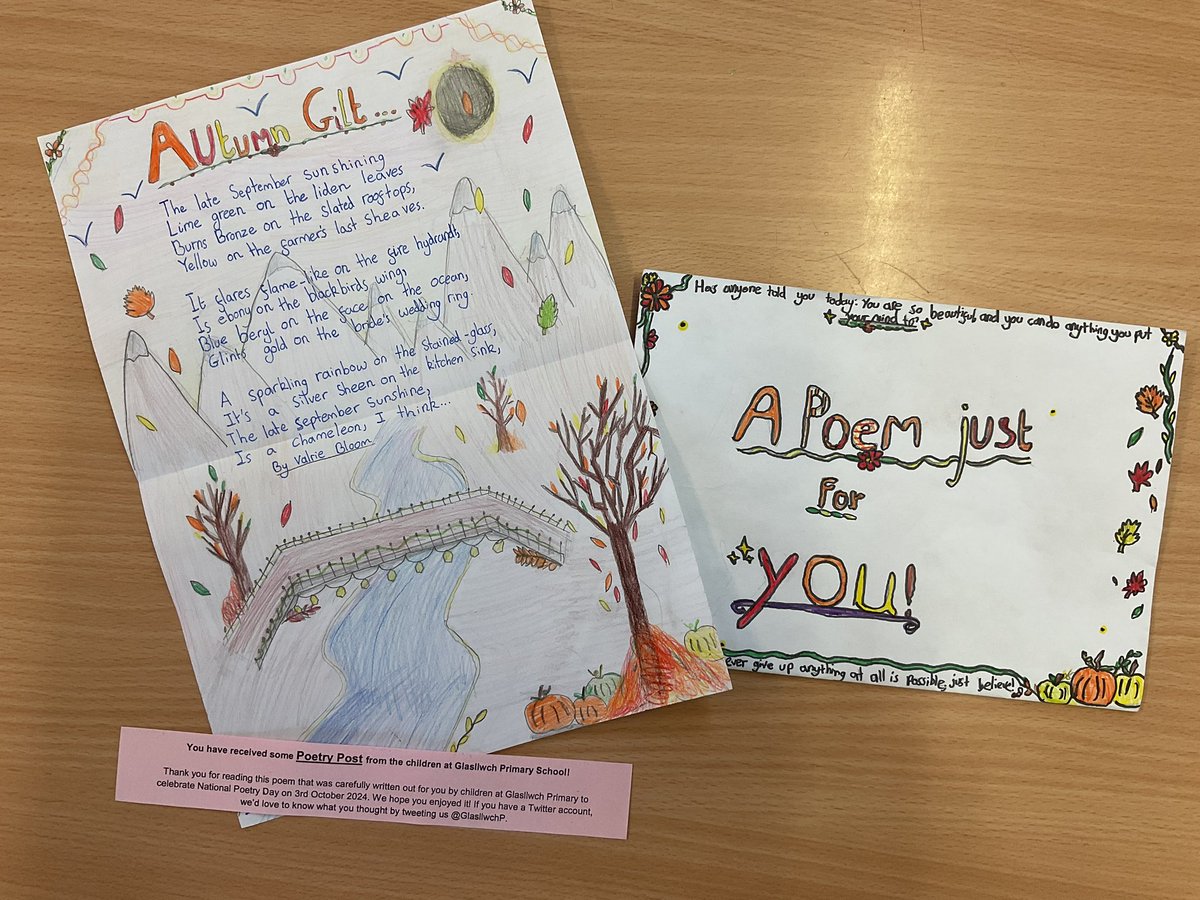 Autumn Gilt...
The late September sunshining
Lime green on the liden leaves
Burns Bronze on the slated rooftops,
Yellow on the farmer's last sheaves.
It flares flame-like on the fire hydrant,
Is ebony on the blackbirds wing,
Blue beryl on the face on the ocean,
Glints gold on the bride's wedding ring.
A sparkling rainbow on the stained-glass,
It's a silver sheen on the kitchen sink,
The late September sunshine,
Is a chameleon, I think...
By Valrie Bloom
Has anyone told you today: You are so beautiful, and you can do anything you put
your mind to?
A Poem just
For
YOU!
ever give up anything at all is Possible, just believe!
You have received some Poetry Post from the children at Glasllwch Primary School!
Thank you for reading this poem that was carefully written out for you by children at Glasllwch Primary to
celebrate National Poetry Day on 3rd October 2024. We hope you enjoyed it! If you have a Twitter account,
we'd love to know what you thought by tweeting us @GlasllwchP.